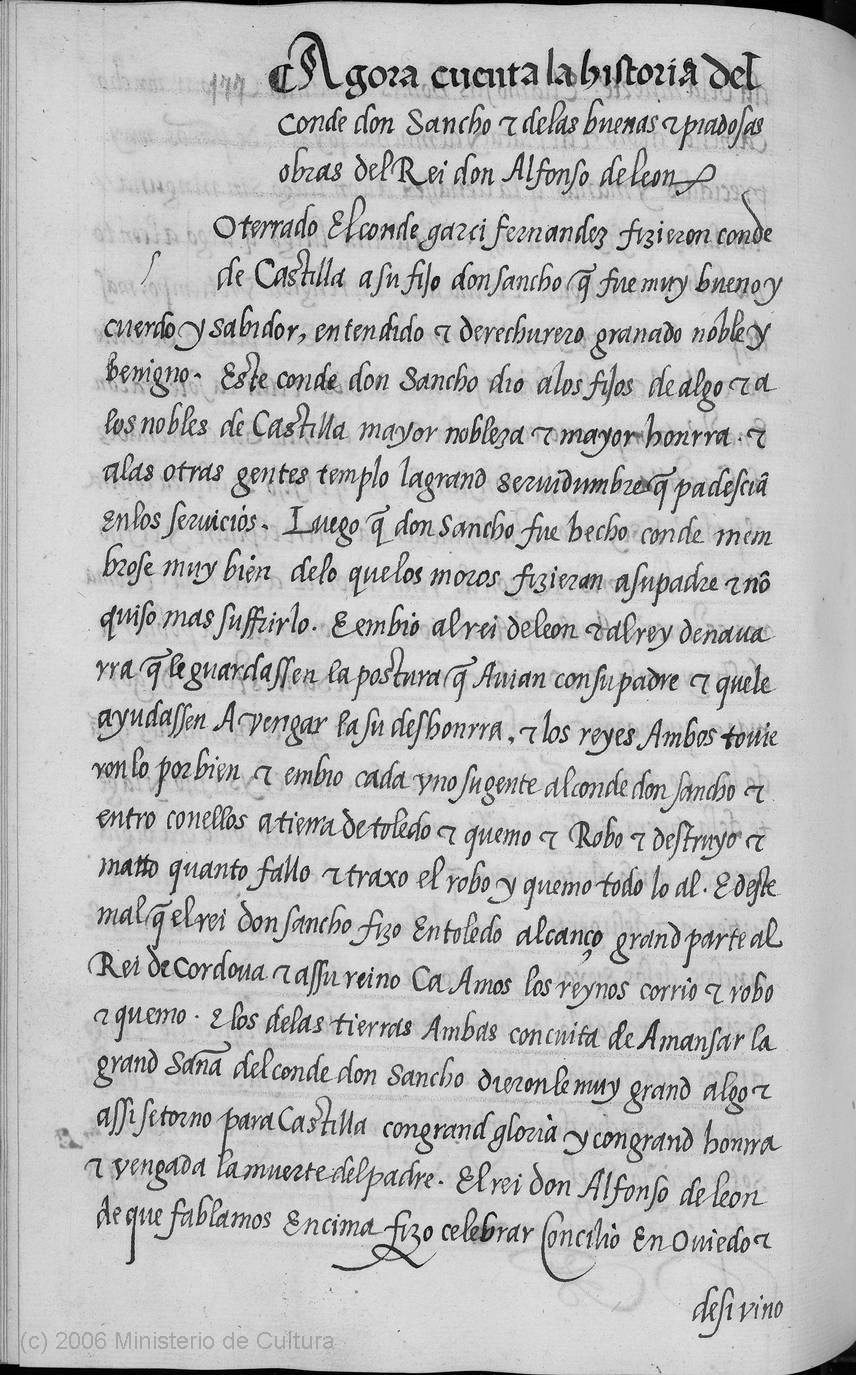 Agora cuenta la historia del
conde don Sancho τ de las buenas τ piadosas
obras del Rei don Alfonso de leon
Oterrado El conde garci fernandez fizieron conde
de Castilla a su fijo don sancho q̃ fue muy bueno y
cuerdo y sabidor, entendido τ derechurero granado noble y
benigno. Este conde don Sancho dio a los fijos de algo τ a
los nobles de Castilla mayor nobleza τ mayor honrra. τ
a las otras gentes templo la grand seruidumbre q̃ padesciã
En los seruiciós. Luego q̃ don Sancho fue hecho conde mem
brose muy bien delo que los moros fizieran a su padre τ nõ
quiso mas suffrirlo. E embio al rei de leon τ al rey de naua
rra q̃ le guardassen la postura q̃ Auian con su padre τ que le
ayudassen A vengar la su deshonrra, τ los reyes Ambos touie
ron lo por bien τ embio cada vno su gente al conde don sancho τ
entro con ellos a tierra de toledo τ quemo τ Robo τ destruyo τ
matto quanto fallo τ traxo el robo y quemo todo lo al. E deste
mal q̃ el rei don sancho fizo En toledo alcanço grand parte al
Rei de Cordoua τ assu reino Ca Amos los reynos corrio τ robo
τ quemo. E los de las tierras Ambas con cuita de Amansar la
grand Saña del conde don Sancho dieron le muy grand algo τ
assi se torno para Castilla con grand gloria y con grand honrra
τ vengada la muerte del padre. El rei don Alfonso de leon
de que fablamos Encima fizo celebrar Concilio En Oviedo τ
desi vino
(c) 2006 Ministerio de Cultura